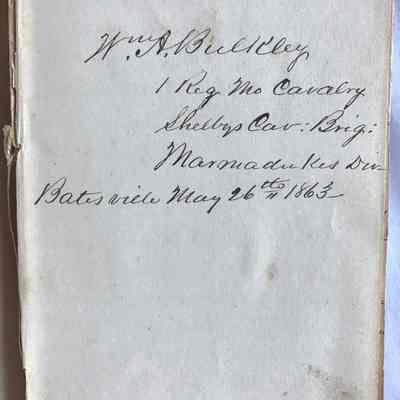 Wm. A. Bulkley
1 Reg Mo Cavalry
Shelbys Cav: Brig:
Marmadukes Div
Batesville May 26th 1863